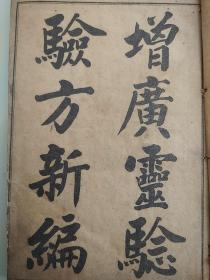 增廣靈騐
驗方新編